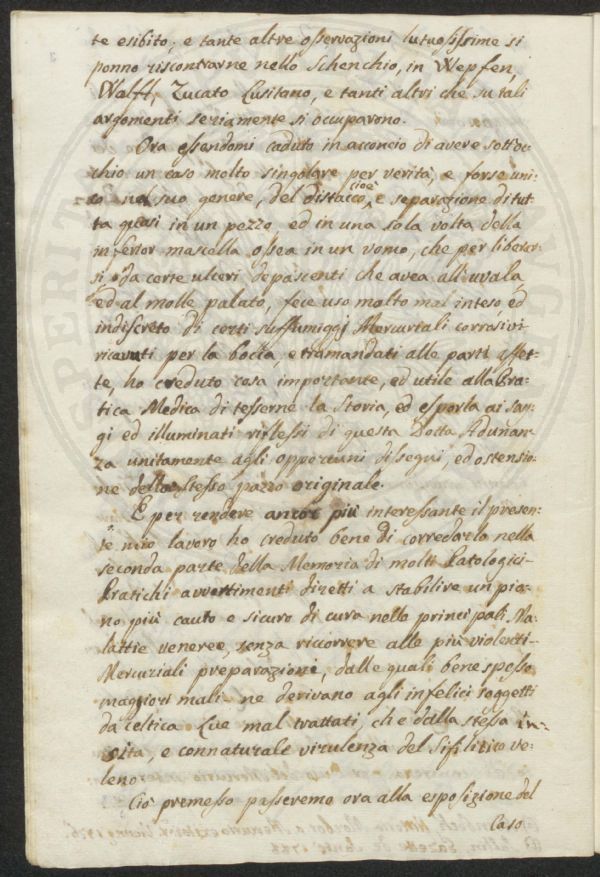 te esibito; e tante altre osservazioni lutuosissime si
ponno riscontrarne nello Schenchio, in Wepfen,
Walff, Zucato Lusitano, e tanti altri che su tali
argomenti seriamente si occuparono.
Ora essendomi caduto in acconcio di avere sott'oc-
chio un caso molto singolare per verità, e forse uni-
co nel suo genere, del distacco, cioè, e separazione di tut-
ta quasi in un pezzo, ed in una sola volta della
inferior mascella ossea in un uomo, che per liberar-
si da certe ulceri depascenti che avea all'uvala,
ed al molle palato, fece uso molto mal inteso, ed
indiscreto di certi suffumiggj Mercuriali corrosivi
ricavuti per la bocca, e tramandati alle parti affet-
te, ho creduto cosa importante, ed utile alla Pra-
tica Medica di tesserne la Storia, ed esporla ai sag-
gi ed illuminati riflessi di questa Dotta Adunan-
za unitamente agli opportuni disegni, ed ostensio-
ne dello stesso pazzo originale.
E per rendere ancor più interessante il presen-
te mio lavoro ho creduto bene di corredarlo nella
seconda parte della Memoria di molti Patologici-
Pratichi avvertimenti diretti a stabilire un pia-
no più cauto e sicuro di cura nelle principali Ma-
lattie veneree, senza ricorrere alle più violenti-
Mercuriali preparazioni, dalle quali bene spesso
maggiori mali ne derivano agli infelici soggetti
da celtica Lue mal trattati, che dalla stessa in-
sita, e connaturale virulenza del Sifilitico ve-
leno.
Ciò premesso passeremo ora alla esposizione del
Caso